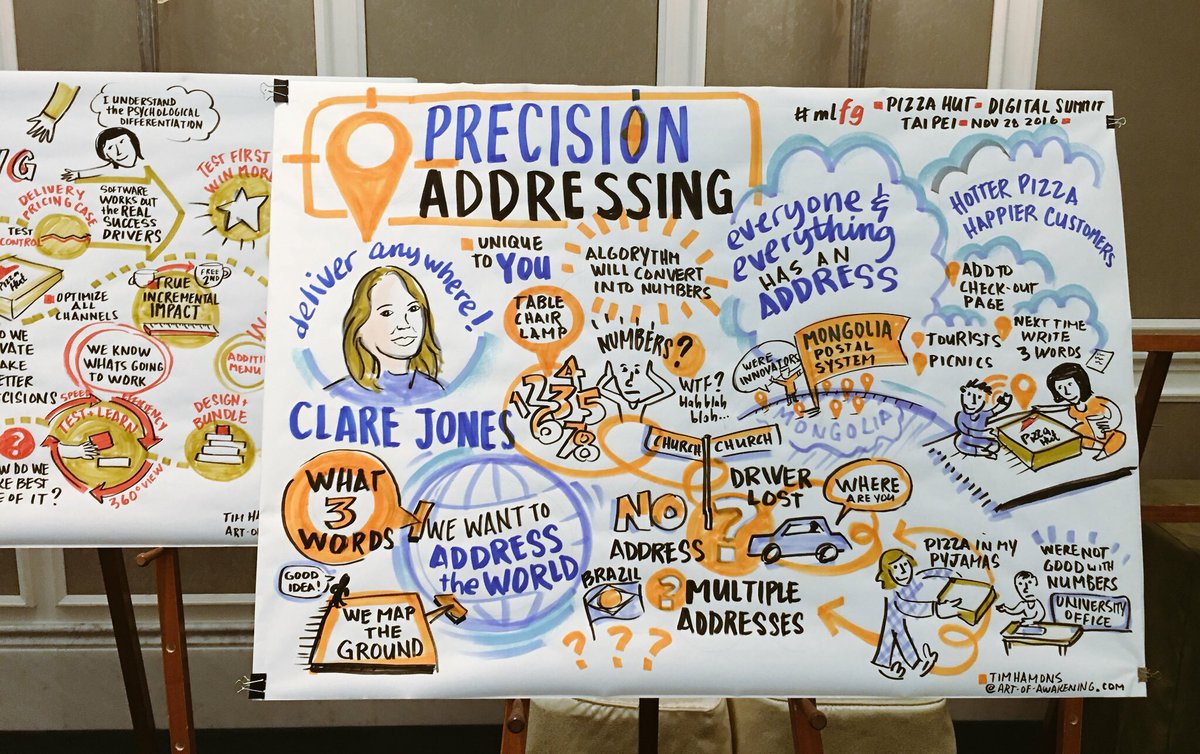 I UNDERSTAND
the PSYCHOLOGICAL
DIFFERENTIATION
SOFTWARE
WORKS OUT
the REAL
SUCCESS
DRIVERS
TEST FIRST
WIN MORE
DELIVERY
PRICING CASE
TEST
CONTROL
Pizza
Hut
OPTIMIZE
ALL
CHANNELS
FREE
2ND
TRUE
INCREMENTAL
IMPACT
WE KNOW
WHATS GOING
TO WORK
MENU
SPEED
TEST + LEARN
360° VIEW
DESIGN +
BUNDLE
?
OF IT?
TIM HAMONS
PRECISION
ADDRESSING
#mlfg PIZZA HUT DIGITAL SUMMIT
TAIPEI NOV 28 2016
deliver anywhere!
CLARE JONES
UNIQUE
TO YOU
ALGORYTHM
WILL CONVERT
INTO NUMBERS
TABLE
CHAIR
LAMP
NUMBERS?
1 2 3 4 5
6 7 8
WTF?
blah blah
blah...
everyone &
everything
HAS AN
ADDRESS
HOTTER PIZZA
HAPPIER CUSTOMERS
ADD TO
CHECK-OUT
PAGE
NEXT TIME
WRITE
3 WORDS
TOURISTS
PICNICS
WERE
INNOVATORS
MONGOLIA
POSTAL
SYSTEM
MONGOLIA
Pizza
Hut
CHURCH CHURCH
WHAT
3
WORDS
WE WANT TO
ADDRESS
the WORLD
GOOD
IDEA!
WE MAP
THE
GROUND
NO
ADDRESS
?
DRIVER
LOST
WHERE
ARE YOU
BRAZIL
? ? ?
? MULTIPLE
ADDRESSES
PIZZA IN MY
PYJAMAS
WERE NOT
GOOD WITH
NUMBERS
UNIVERSITY
OFFICE
TIM HAMONS
@ART-OF-AWAKENING.COM